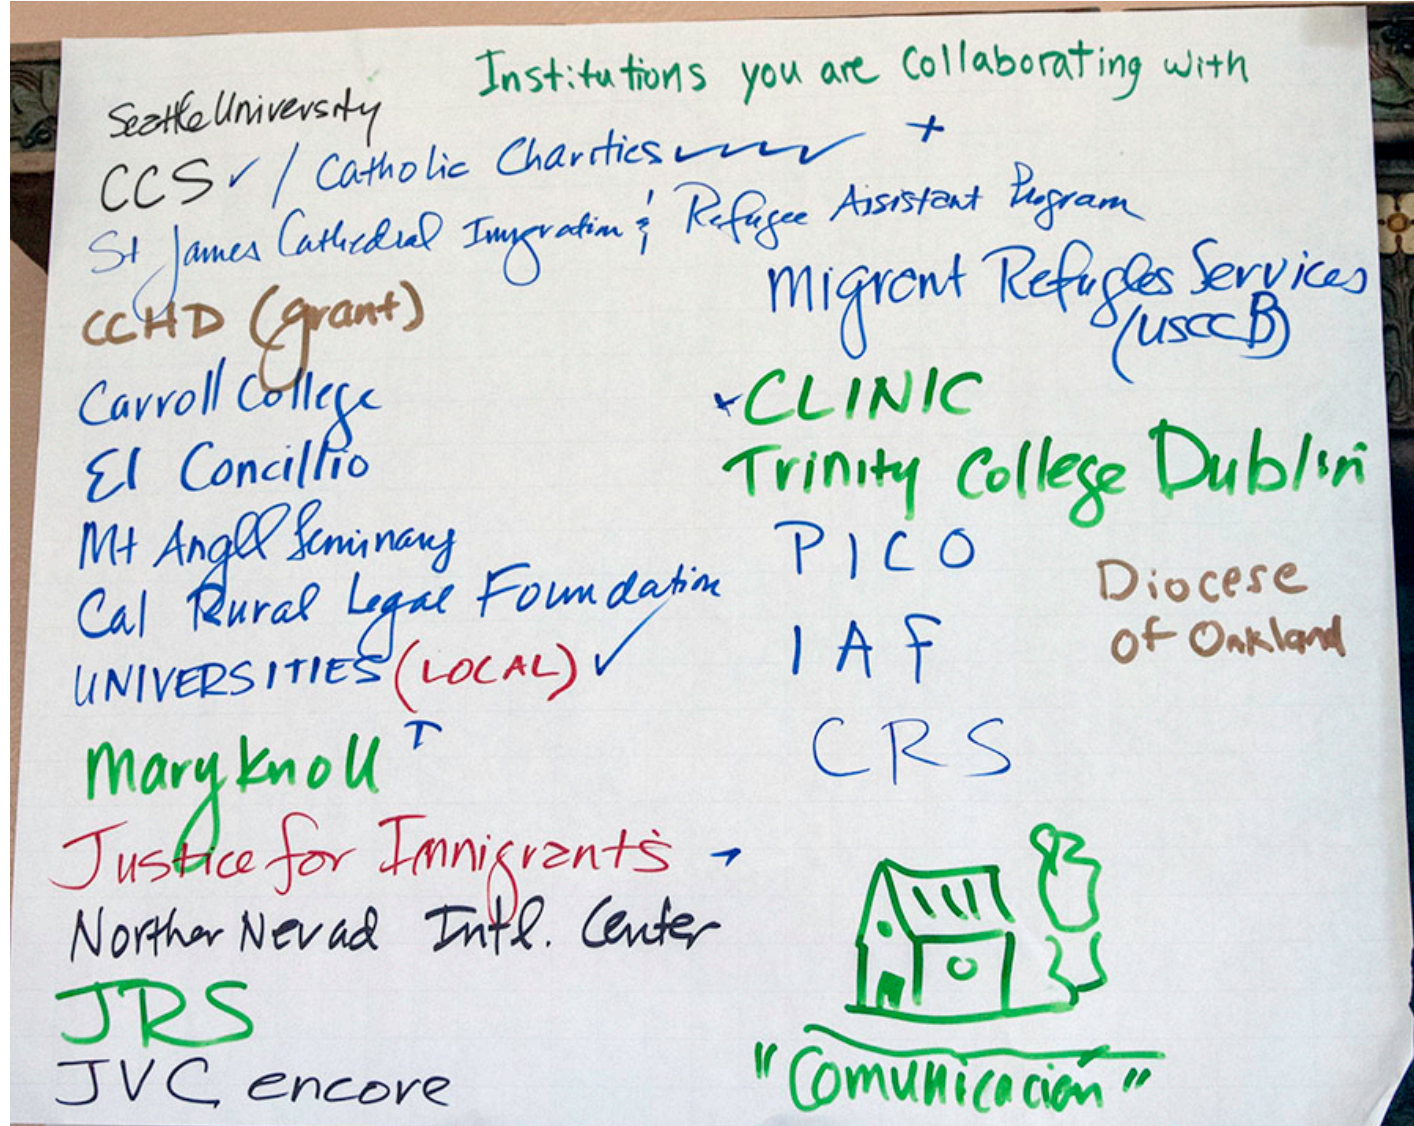 Institutions you are Collaborating with
Seattle University
CCS ✓ / Catholic Charities +
St James Cathedral Imygration & Refugee Assistant Program
CCHD (grant)
Carroll College
El Concillio
Mt Angel Seminary
Cal Rural Legal Foundation
UNIVERSITIES (LOCAL) ✓
Maryknoll
Justice for Imnigrants
Norther Nevad Intl. Center
JRS
JVC encore
Migrant Refugees Services
(USCCB)
+ CLINIC
Trinity College Dublin
PICO
IAF
CRS
Diocese
of Oakland
"Comunicación"